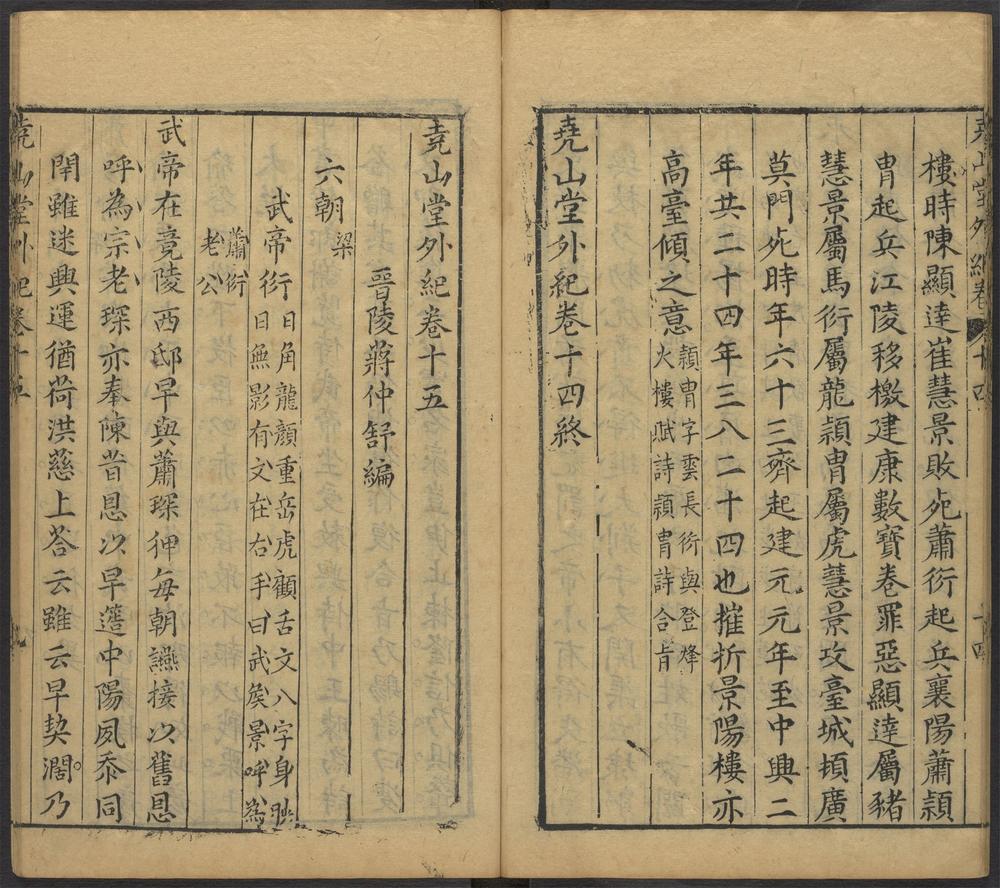 樓時陳顯達崔慧景敗死蕭衍起兵襄陽蕭頴
胄起兵江陵移檄建康數寶卷罪惡顯達屬豬
慧景屬馬衍屬龍頴胄屬虎慧景攻臺城頓廣
莫門死時年六十三齊起建元元年至中興二
年共二十四年三八二十四也摧折景陽樓亦
高臺傾之意
頴胄字雲長衍與登烽
火樓賦詩頴胄詩合旨
堯山堂外紀卷十四終
堯山堂外紀卷十五
晉陵蔣仲舒編
六朝
梁
武帝衍
日角龍顏重岳虎顧舌文八字身映
日無影有文在右手曰武矦景呼爲
蕭衍
老公
武帝在竟陵西邸早與蕭琛狎每朝讌接以舊恩
呼為宗老琛亦奉陳昔恩以早簉中陽夙忝同
閈雖迷興運猶荷洪慈上荅云雖云早契濶乃
堯山堂外紀卷十五